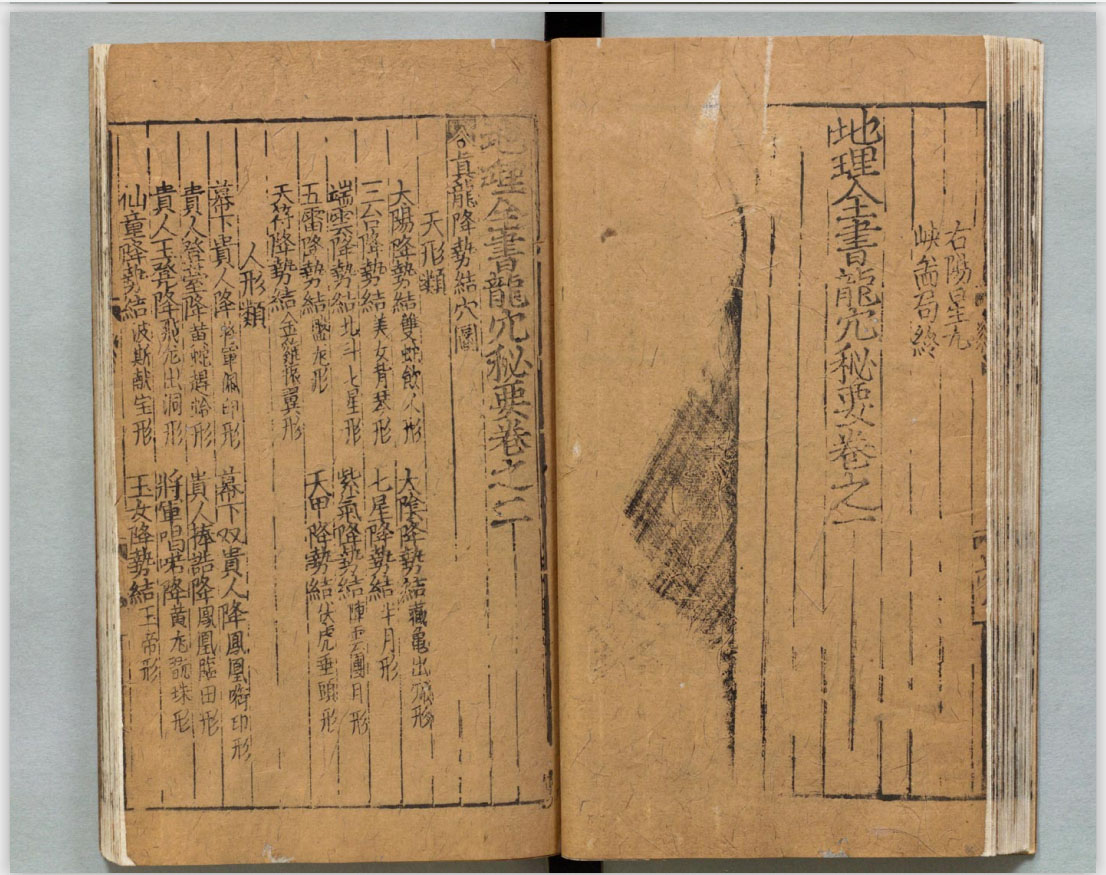 右陽星九
峽畨局終
地理全書龍穴秘要卷之一
地理全書龍穴秘要卷之二
真龍降勢結穴圖
天形類
太陽降勢結雙蛇飲人形
太陰降勢結藏龜出形
三台降勢結美女背琴形
七星降勢結半月形
端雲降勢結北斗七星形
紫氣降勢結陣雲團月形
五雷降勢結龙形
天甲降勢結伏虎垂頭形
天符降勢結金翼形
人形類
幕下貴人降將軍佩印形
幕下双貴人降鳳凰啣印形
貴人登臺降黄蛇趕蛉形
貴人捧誥降鳳凰臨田形
貴人玉凳降飛龙出洞形
將軍唱喏降黄龙玩珠形
仙童降勢結波斯献宝形
玉女降勢結玉帝形